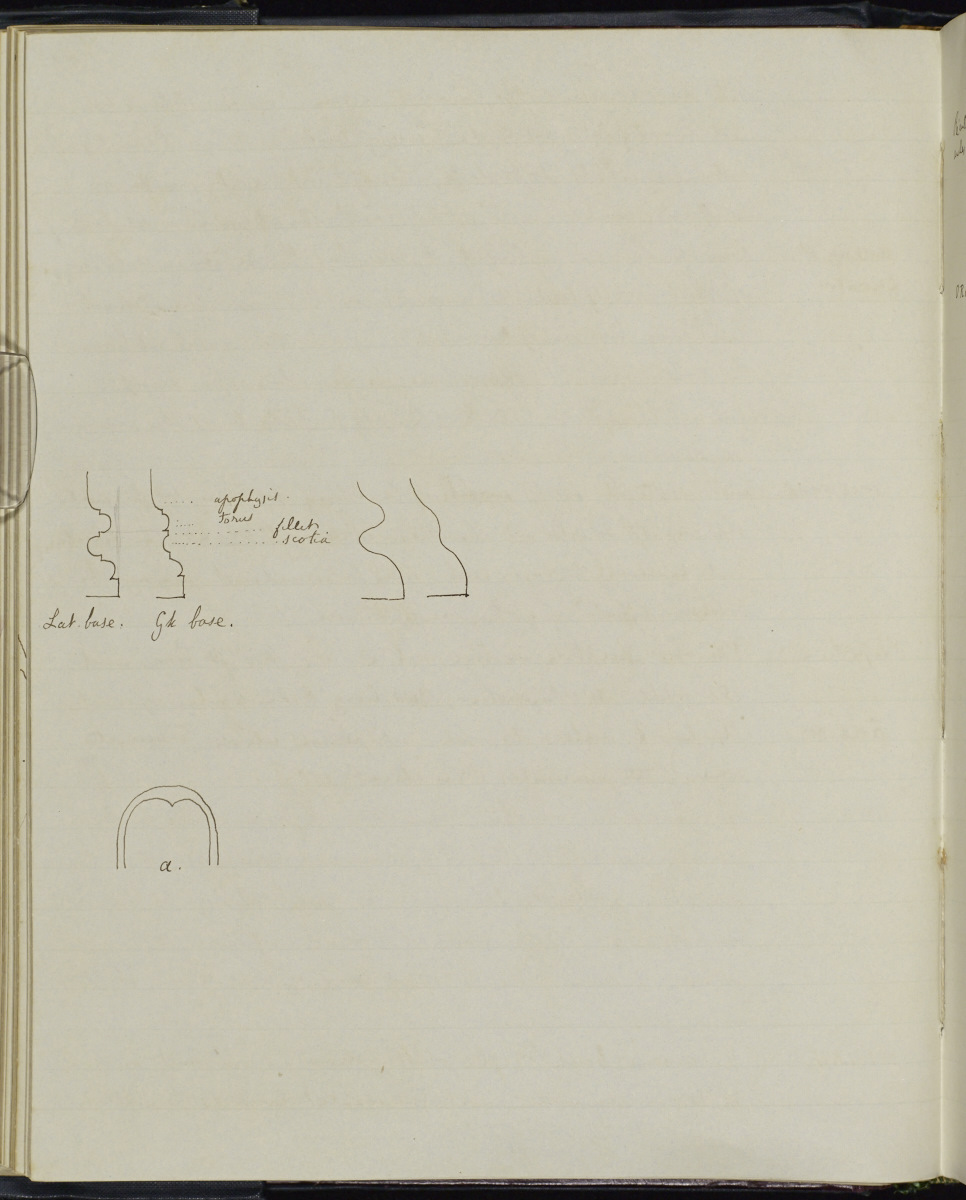 apophysis.
Torus
fillets
scotia
Lat. base. Gk base.
a.